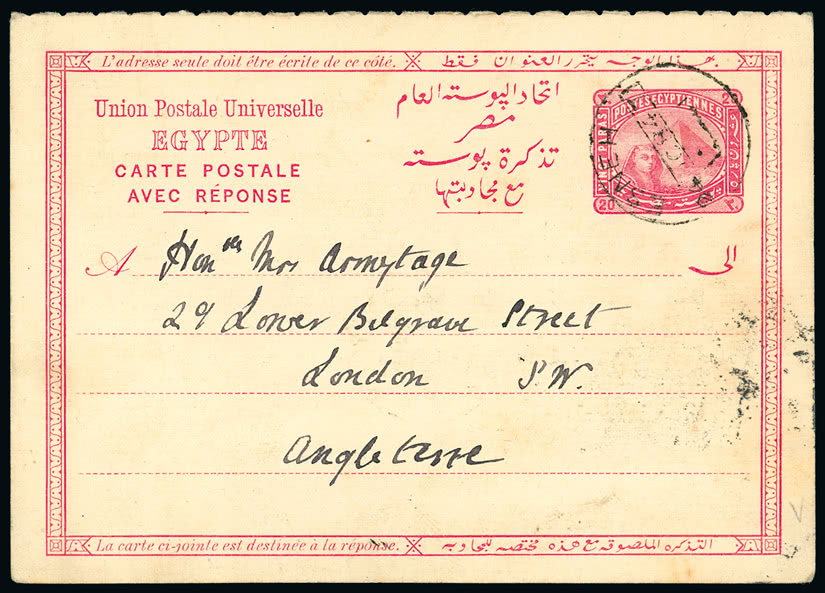 L'adresse seule doit être écrite de ce côté.
بهذا الوجه يتحرر العنوان فقط
Union Postale Universelle
EGYPTE
CARTE POSTALE
AVEC RÉPONSE
اتحاد البوسته العام
مصر
تذكرة بوسته
مع مجاوبتها
POSTES EGYPTIENNES
20
ESNEH
A Honble Mrs Armytage
الى
29 Lower Belgrave Street
London S.W.
Angleterre
La carte ci-jointe est destinée à la réponse.
التذكره الملصوقه مع هذه مختصه للمجاوبه